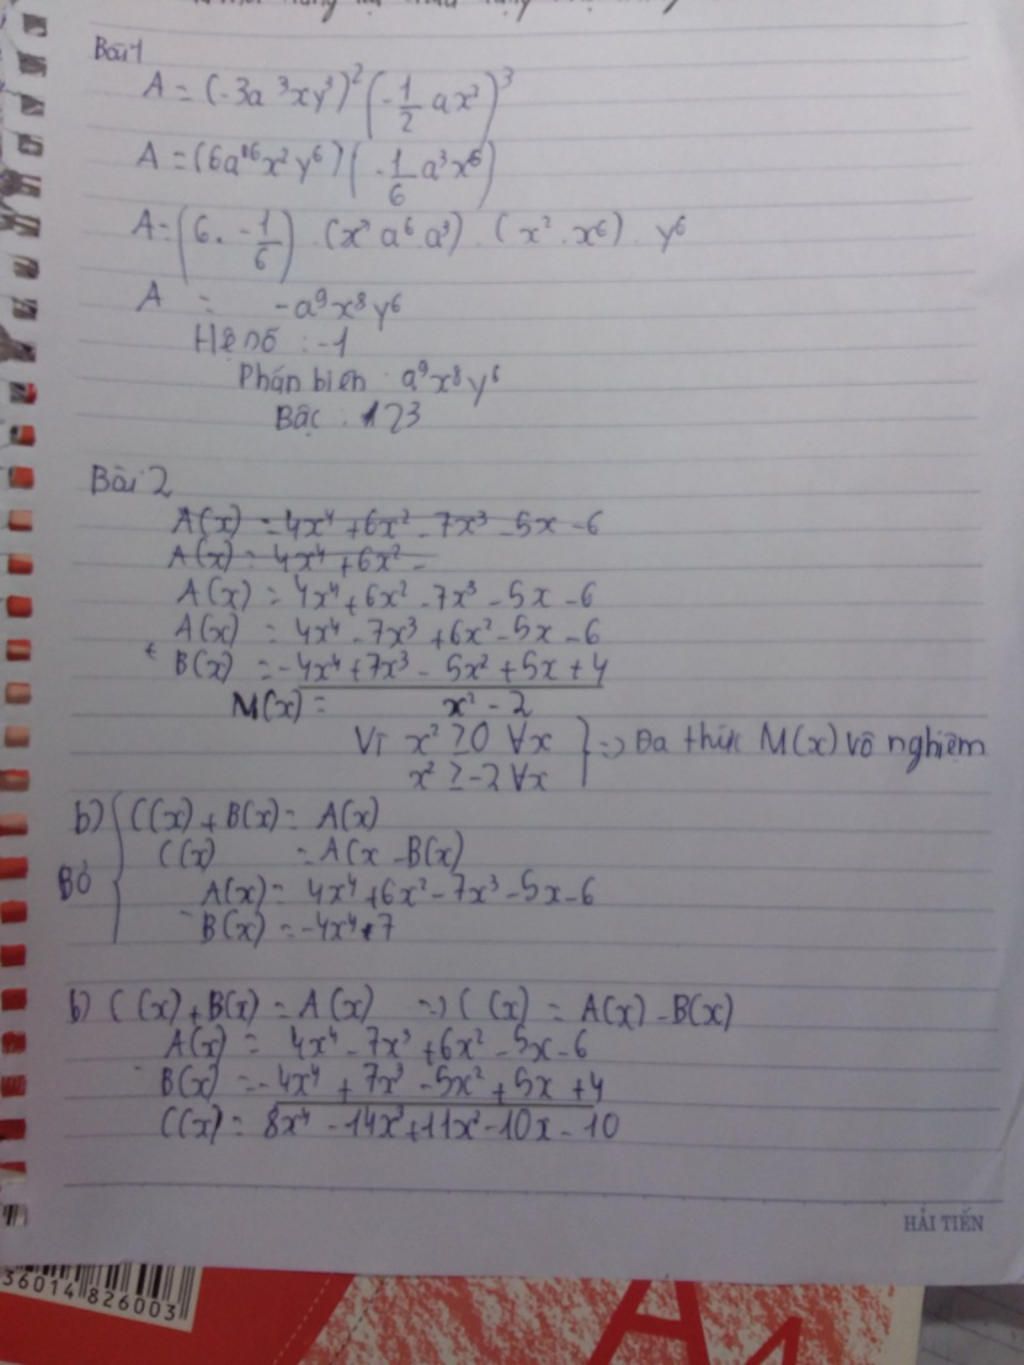 Bài 1
A = (-3a³xy³)² (-1/2 ax²)³
A = (6a⁶x²y⁶) (-1/6 a³x⁶)
A = (6 . -1/6) . (a⁶ a³) . (x² . x⁶) . y⁶
A = -a⁹x⁸y⁶
Hệ số : -1
Phần biến : a⁹x⁸y⁶
Bậc : 23
Bài 2
A(x) = 4x⁴ + 6x² - 7x³ - 5x - 6
A(x) = 4x⁴ + 6x² -
A(x) = 4x⁴ + 6x² - 7x³ - 5x - 6
A(x) = 4x⁴ - 7x³ + 6x² - 5x - 6
+ B(x) = -4x⁴ + 7x³ - 5x² + 5x + 4
M(x) = x² - 2
Vì x² ≥ 0 ∀x } => Đa thức M(x) vô nghiệm
x² ≥ -2 ∀x
b) C(x) + B(x) = A(x)
C(x) = A(x - B(x)
Bỏ
A(x) = 4x⁴ + 6x² - 7x³ - 5x - 6
- B(x) = -4x⁴ + 7
b) C(x) + B(x) = A(x) => C(x) = A(x) - B(x)
A(x) = 4x⁴ - 7x³ + 6x² - 5x - 6
- B(x) = -4x⁴ + 7x³ - 5x² + 5x + 4
C(x) = 8x⁴ - 14x³ + 11x² - 10x - 10
HẢI TIẾN
36014 826003